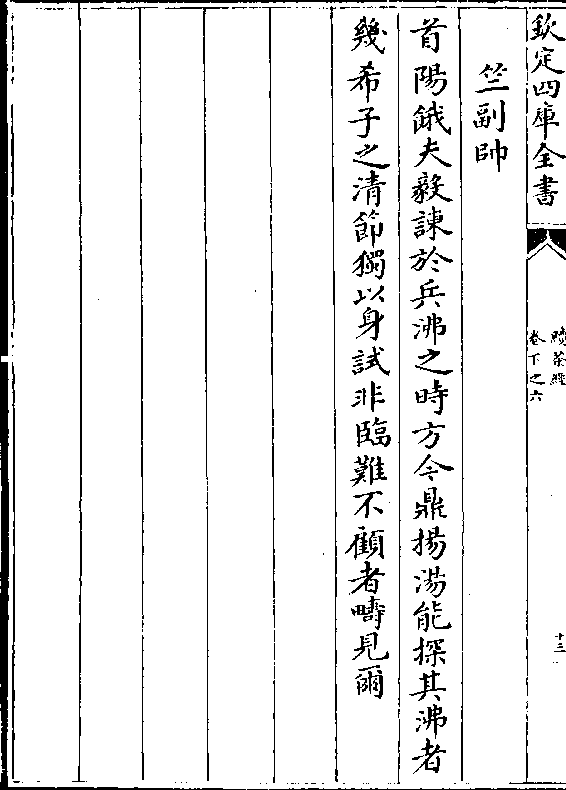 欽定四庫全書
續茶經
卷下之六
十三
竺副帥
首陽餓夫毅諫於兵沸之時方今鼎揚湯能探其沸者
幾希子之清節獨以身試非臨難不顧者疇見爾